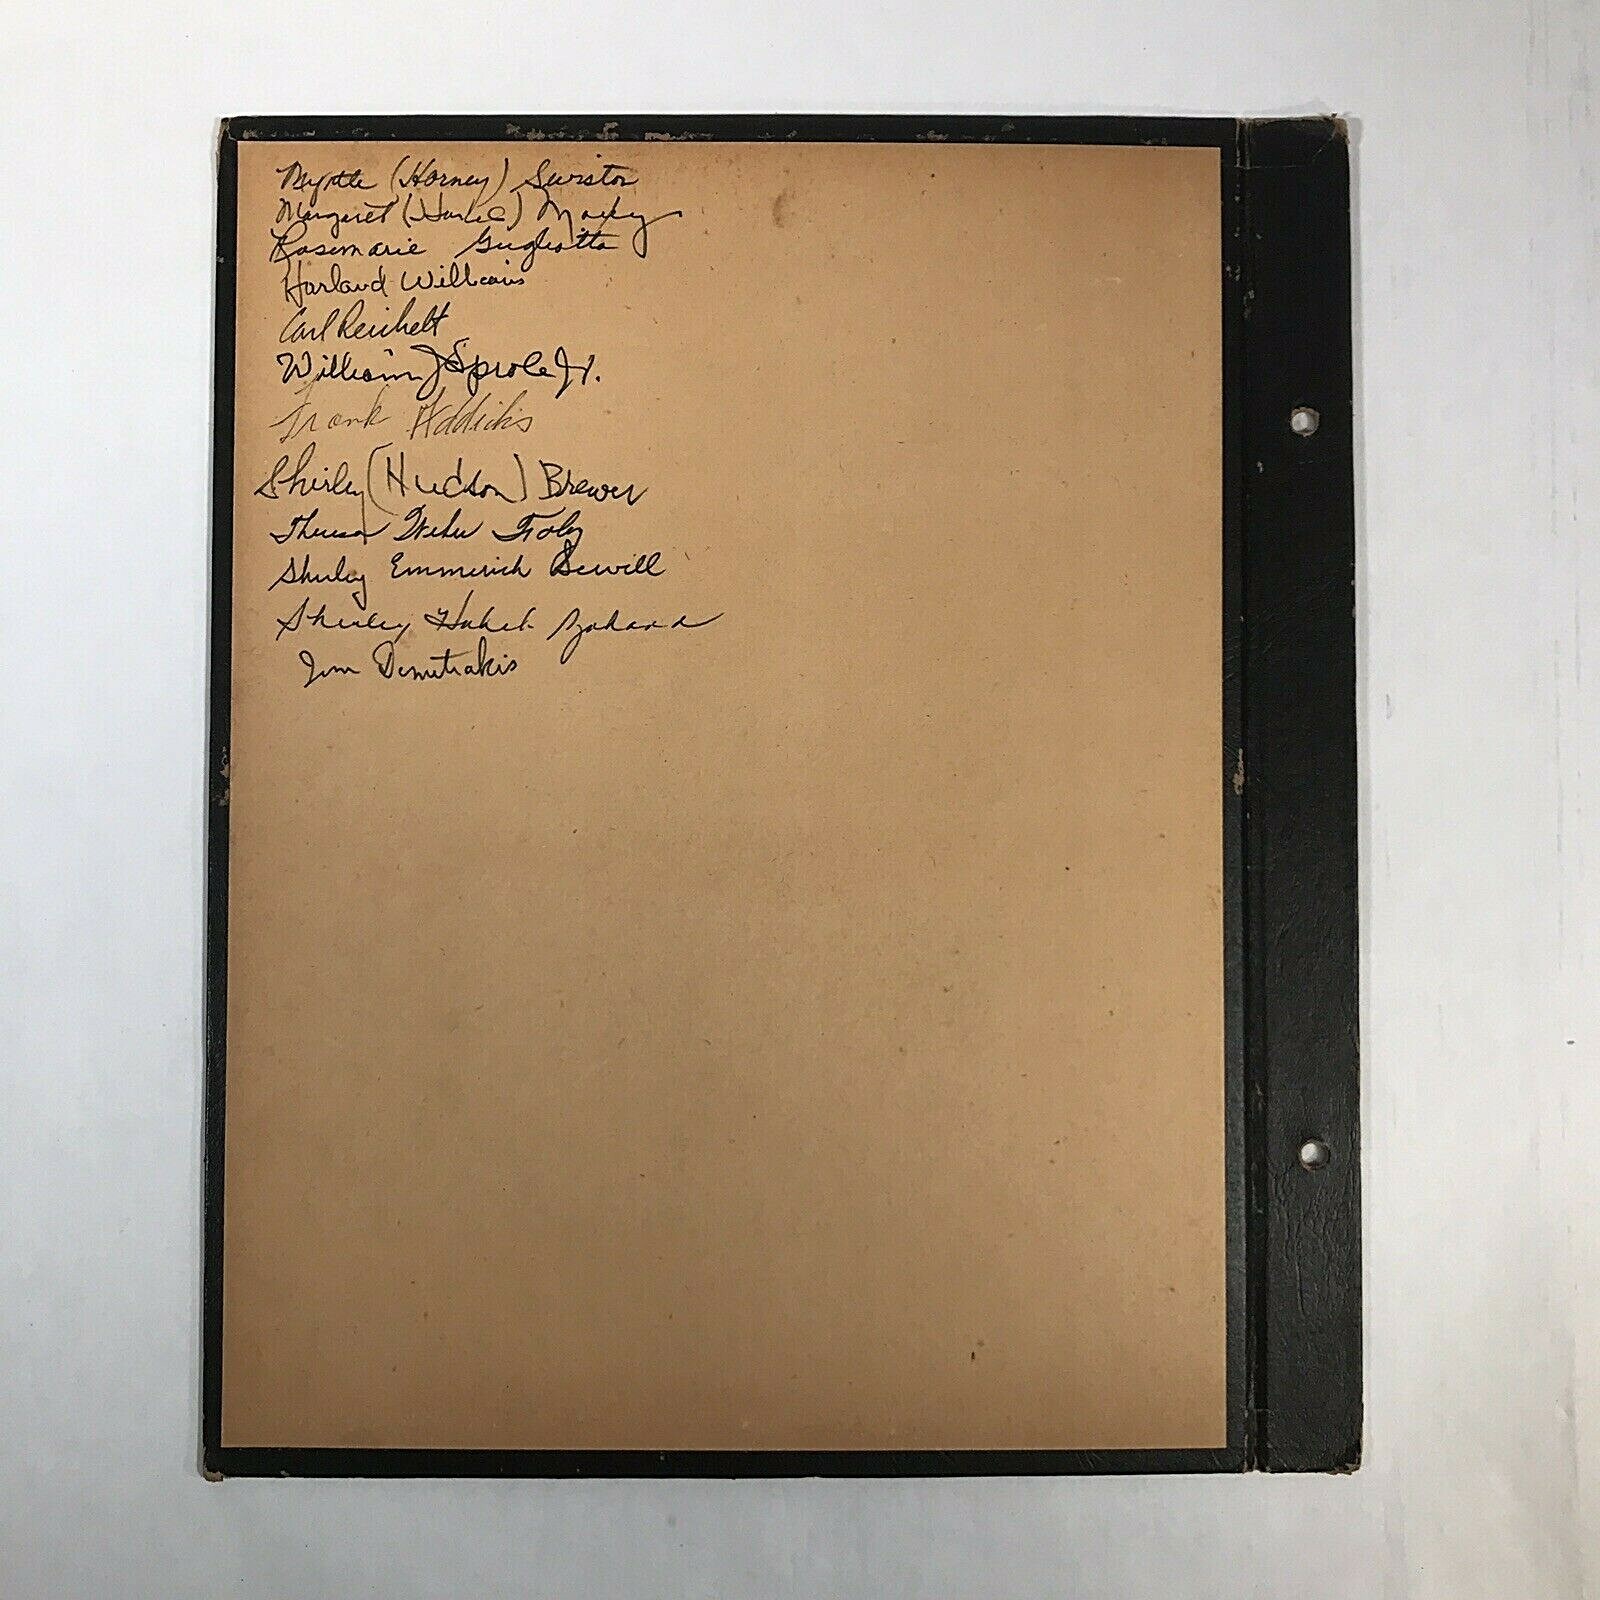 Myrtle (Horney) Swiston
Margaret
Rosemarie Gugliotta
Harland Williams
Carl Reichelt
William J Sprole Jr.
Frank Addicks
Shirley (Hudson) Brewer
Theresa Weber Foley
Shirley Emmerich Sewill
Shirley
Jim Dimitrakis